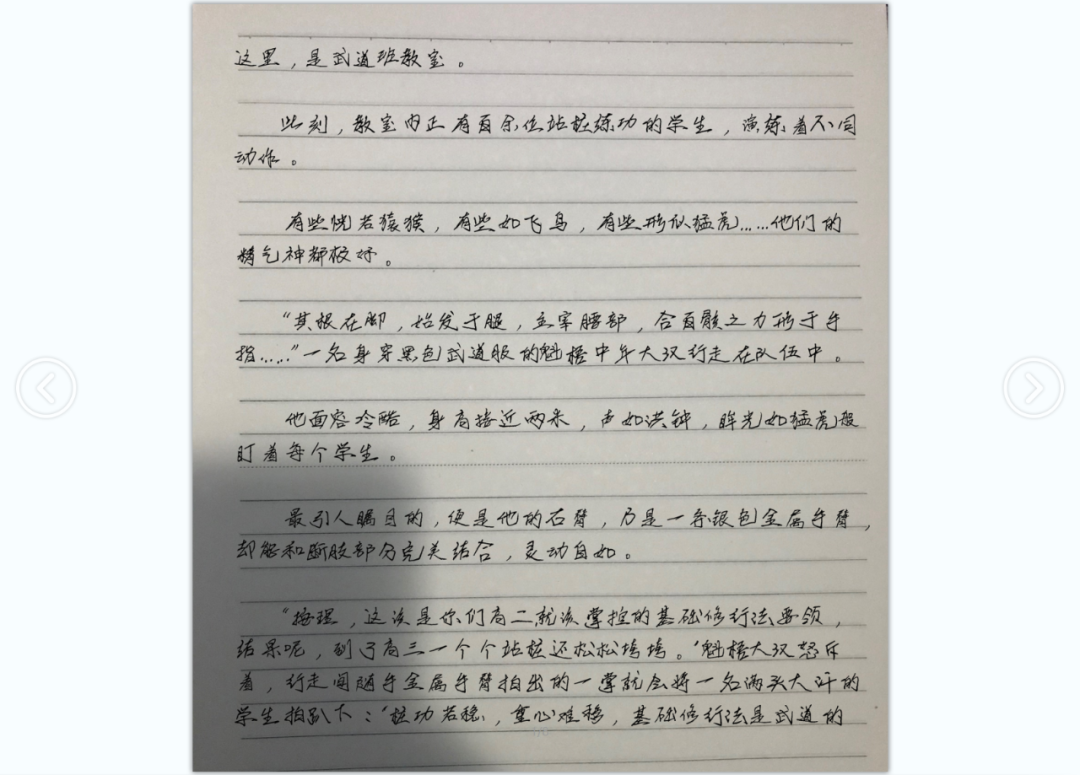 这里，是武道班教室。
此刻，教室内正有百余位站桩练功的学生，演练着不同
动作。
有些恍若猿猴，有些如飞鸟，有些形似猛虎……他们的
精气神都极好。
“其根在脚，始发于腿，主宰腰部，合百骸之力形于手
指……”一名身穿黑色武道服的魁梧中年大汉行走在队伍中。
他面容冷酷，身高接近两米，声如洪钟，眸光如猛虎般
盯着每个学生。
最引人瞩目的，便是他的右臂，乃是一条银色金属手臂，
却能和断肢部分完美结合，灵动自如。
“按理，这该是你们高二就该掌控的基础修行法要领，
结果呢，到了高三一个个站桩还松松垮垮。”魁梧大汉怒斥
着，行走间随手金属手臂拍出的一掌就会将一名满头大汗的
学生拍趴下：“桩功若稳，重心难移，基础修行法是武道的